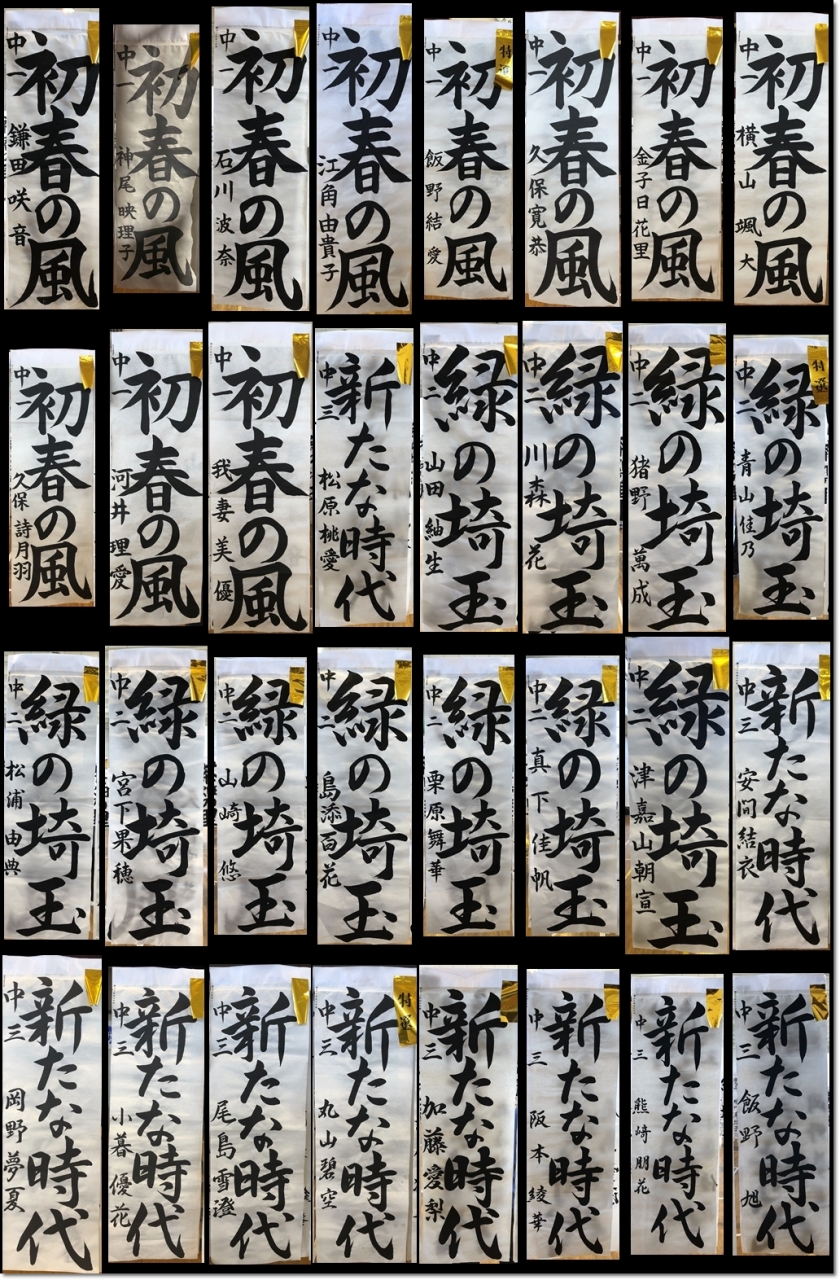 中一 初春の風 鎌田咲音
中一 初春の風 神尾映理子
中一 初春の風 石川波奈
中一 初春の風 江角由貴子
特選 中一 初春の風 飯野結愛
中一 初春の風 久保寛恭
中一 初春の風 金子日花里
中一 初春の風 横山颯大
中一 初春の風 久保詩月羽
中一 初春の風 河井理愛
中一 初春の風 我妻美優
中三 新たな時代 松原桃愛
中二 緑の埼玉 山田紬生
中二 緑の埼玉 川森花
中二 緑の埼玉 猪野萬成
特選 中二 緑の埼玉 青山佳乃
中二 緑の埼玉 松浦由典
中二 緑の埼玉 宮下果穂
中二 緑の埼玉 山崎悠
中二 緑の埼玉 島添百花
中二 緑の埼玉 栗原舞華
中二 緑の埼玉 真下佳帆
中二 緑の埼玉 津嘉山朝宣
中三 新たな時代 安間結衣
中三 新たな時代 岡野夢夏
中三 新たな時代 小暮優花
中三 新たな時代 尾島雪澄
特選 中三 新たな時代 丸山碧空
中三 新たな時代 加藤愛梨
中三 新たな時代 阪本綾華
中三 新たな時代 熊崎朋花
中三 新たな時代 飯野旭